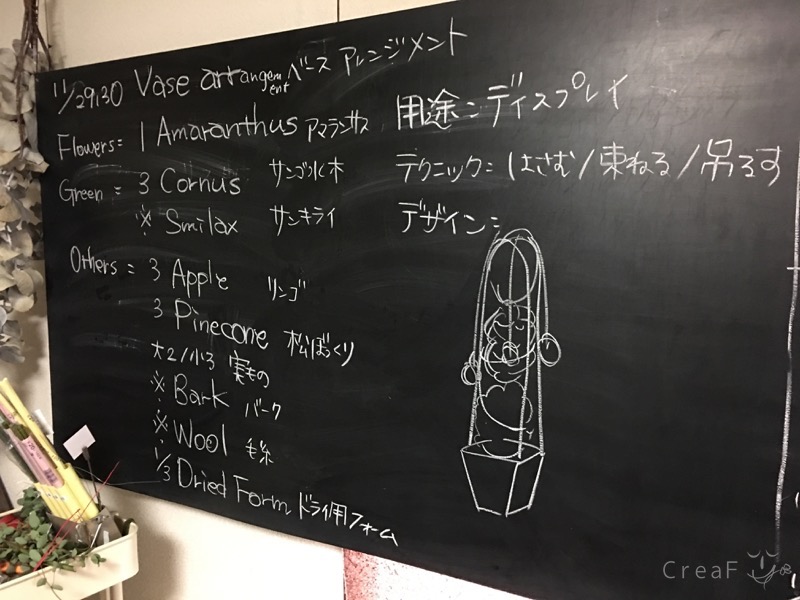 11/29,30 Vase arrangement ベース アレンジメント
Flowers= 1 Amaranthus アマランサス
Green = 3 Cornus サンゴ水木
※ Smilax サンキライ
Others = 3 Apple リンゴ
3 Pinecone 松ぼっくり
大2/小3 実もの
※ Bark バーク
※ Wool 毛糸
1/3 Dried Form ドライ用フォーム
用途:ディスプレイ
テクニック: はさむ/束ねる/吊るす
デザイン:
CreaF